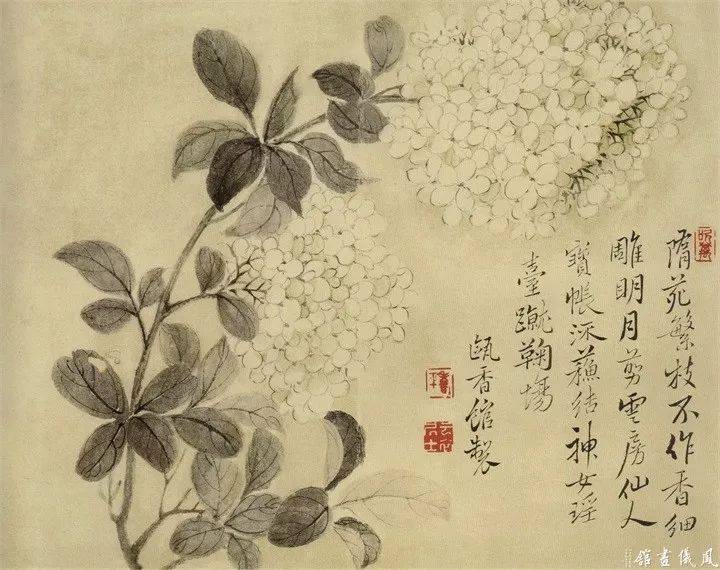 隋苑繁枝不作香細
雕明月剪雲房仙人
寶帳流蘓結神女瑶
臺蹴鞠場
甌香館製
鳳儀畫館